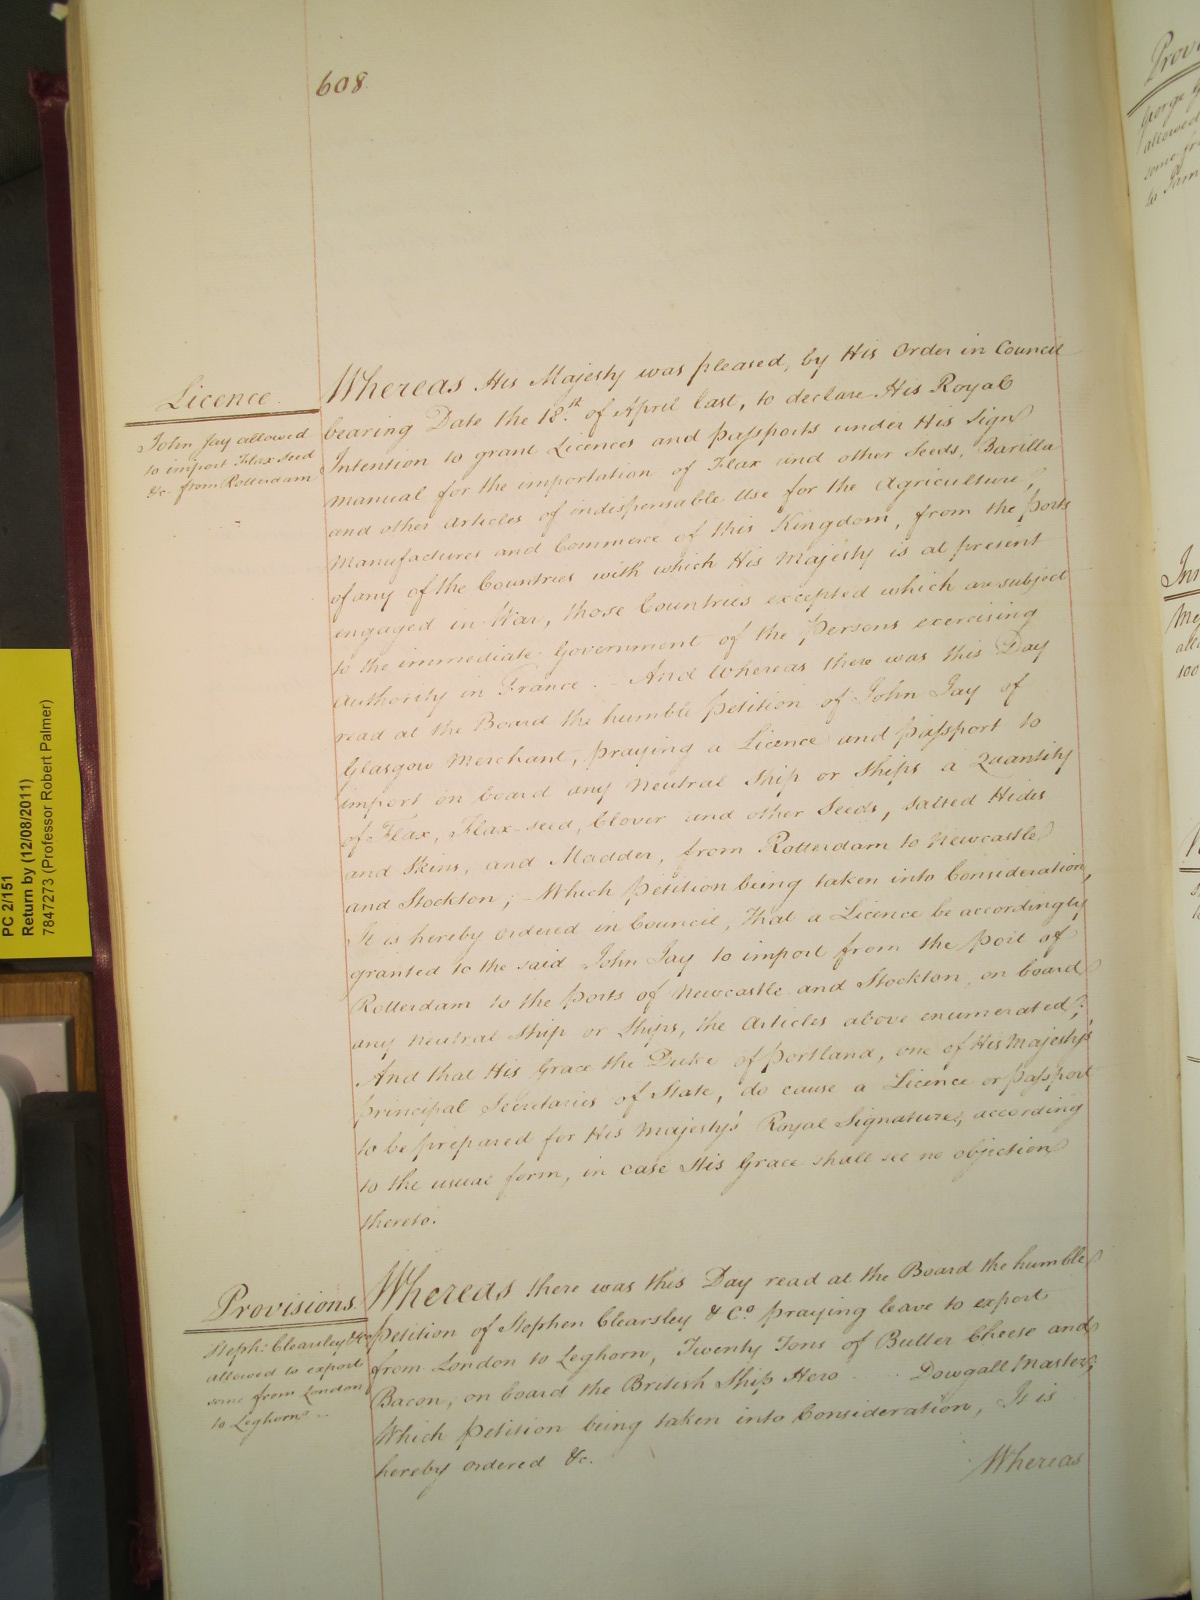 608.
Licence.
John Jay allowed
to import Flax Seed
&c. from Rotterdam
Whereas His Majesty was pleased, by His Order in Council
bearing Date the 18.th of April last, to declare His Royal
Intention to grant Licences and Passports under His Sign
Manual for the importation of Flax and other Seeds, Barilla
and other Articles of indispensable Use for the Agriculture,
Manufactures and Commerce of this Kingdom, from the Ports
of any of the Countries with which His Majesty is at present
engaged in War, those Countries excepted which are subject
to the immediate Government of the Persons exercising
Authority in France. - And Whereas there was this Day
read at the Board the humble Petition of John Jay of
Glasgow Merchant, praying a Licence and Passport to
import on board any Neutral Ship or Ships a Quantity
of Flax, Flax-seed, Clover and other Seeds, salted Hides
and Skins, and Madder, from Rotterdam to Newcastle
and Stockton; - Which Petition being taken into Consideration,
It is hereby ordered in Council, that a Licence be accordingly
granted to the said John Jay to import from the Port of
Rotterdam to the Ports of Newcastle and Stockton, on board
any Neutral Ship or Ships, the Articles above enumerated;
And that His Grace the Duke of Portland, one of His Majesty's
Principal Secretaries of State, do cause a Licence or Passport
to be prepared for His Majesty's Royal Signature, according
to the usual form, in case His Grace shall see no objection
thereto.
Provisions.
Steph: Clearsley & Co
allowed to export
some from London
to Leghorn
Whereas there was this Day read at the Board the humble
Petition of Stephen Clearsley & Co. praying leave to export
from London to Leghorn, Twenty Tons of Butter Cheese and
Bacon, on board the British Ship Hero Dowgall Master;
Which Petition being taken into Consideration, It is
hereby ordered &c.
Whereas
PC 2/151
Return by (12/08/2011)
7847273 (Professor Robert Palmer)